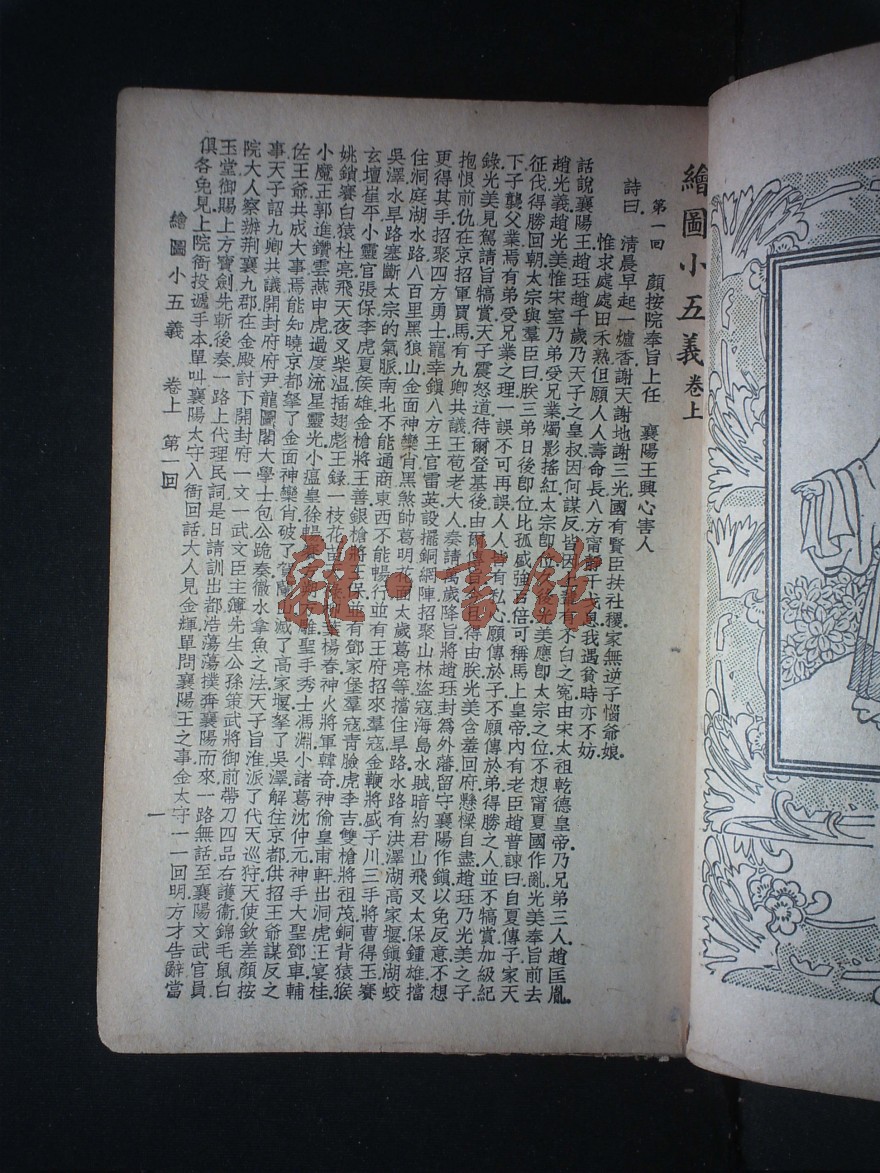 繪圖小五義卷上
第一回 顏按院奉旨上任 襄陽王興心害人
詩曰 清晨早起一爐香謝天謝地謝三光國有賢臣扶社稷家無逆子惱爺娘
惟求處處田禾熟但願人人壽命長八方甯靜干戈息我遇貧時亦不妨
話說襄陽王趙珏趙千歲乃天子之皇叔因何謀反皆因上輩有不白之冤由宋太祖乾德皇帝乃兄弟三人趙匡胤
趙光義趙光美惟宋室乃弟受兄業燭影搖紅太宗卽位光美應卽太宗之位不想甯夏國作亂光美奉旨前去
征伐得勝回朝太宗與羣臣曰朕三弟日後卽位比孤盛強百倍可稱馬上皇帝內有老臣趙普諫曰自夏傳子家天
下子襲父業焉有弟受兄業之理一誤不可再誤人人皆有私心願傳於子不願傳於弟得勝之人並不犒賞加級紀
錄光美見駕請旨犒賞天子震怒道待爾登基後由爾傳旨由朕光美含羞回府懸樑自盡趙珏乃光美之子
抱恨前仇在京招軍買馬有九卿共議王苞老大人奏請萬歲降旨將趙珏封爲外藩留守襄陽作鎭以免反意不想
更得其手招聚四方勇士寵幸鎭八方王官雷英設擺銅網陣招聚山林盜寇海島水賊暗約君山飛叉太保鍾雄擋
住洞庭湖水路八百里黑狼山金面神欒肖黑煞帥葛明花面太歲葛亮等擋住旱路水路有洪澤湖高家堰鎭湖蛟
吳澤水旱路塞斷太宗的氣脈南北不能通商東西不能暢行並有王府招來羣寇金鞭將盛子川三手將曹得玉賽
玄壇崔平小靈官張保李虎夏侯雄金槍將王善銀槍將王保並有鄧家堡羣寇靑臉虎李吉雙槍將祖茂銅背猿猴
姚鎖賽白猿杜亮飛天夜叉柴温插翅彪王錄一枝花苗楊春神火將軍韓奇神偷皇甫軒出洞虎王宴桂
小魔王郭進鑽雲燕申虎過度流星靈光小瘟皇徐暢賽雄聖手秀士馮淵小諸葛沈仲元神手大聖鄧車輔
佐王爺共成大事焉能知曉京都拏了金面神欒肖破了賀蘭山滅了高家堰拏了吳澤解往京都供招王爺謀反之
事天子詔九卿共議開封府府尹龍圖閣大學士包公跪奏徹水拿魚之法天子旨准派了代天巡狩天使欽差顏按
院大人察辦荆襄九郡在金殿討下開封府一文一武文臣主簿先生公孫策武將御前帶刀四品右護衞錦毛鼠白
玉堂御賜上方寶劍先斬後奏一路上代理民詞是日請訓出都浩蕩蕩撲奔襄陽而來一路無話至襄陽文武官員
俱各免見上院衙投遞手本單叫襄陽太守入衙回話大人見金輝單問襄陽王之事金太守一一回明方才告辭當
繪圖小五義 卷上 第一回
一
雜·書館